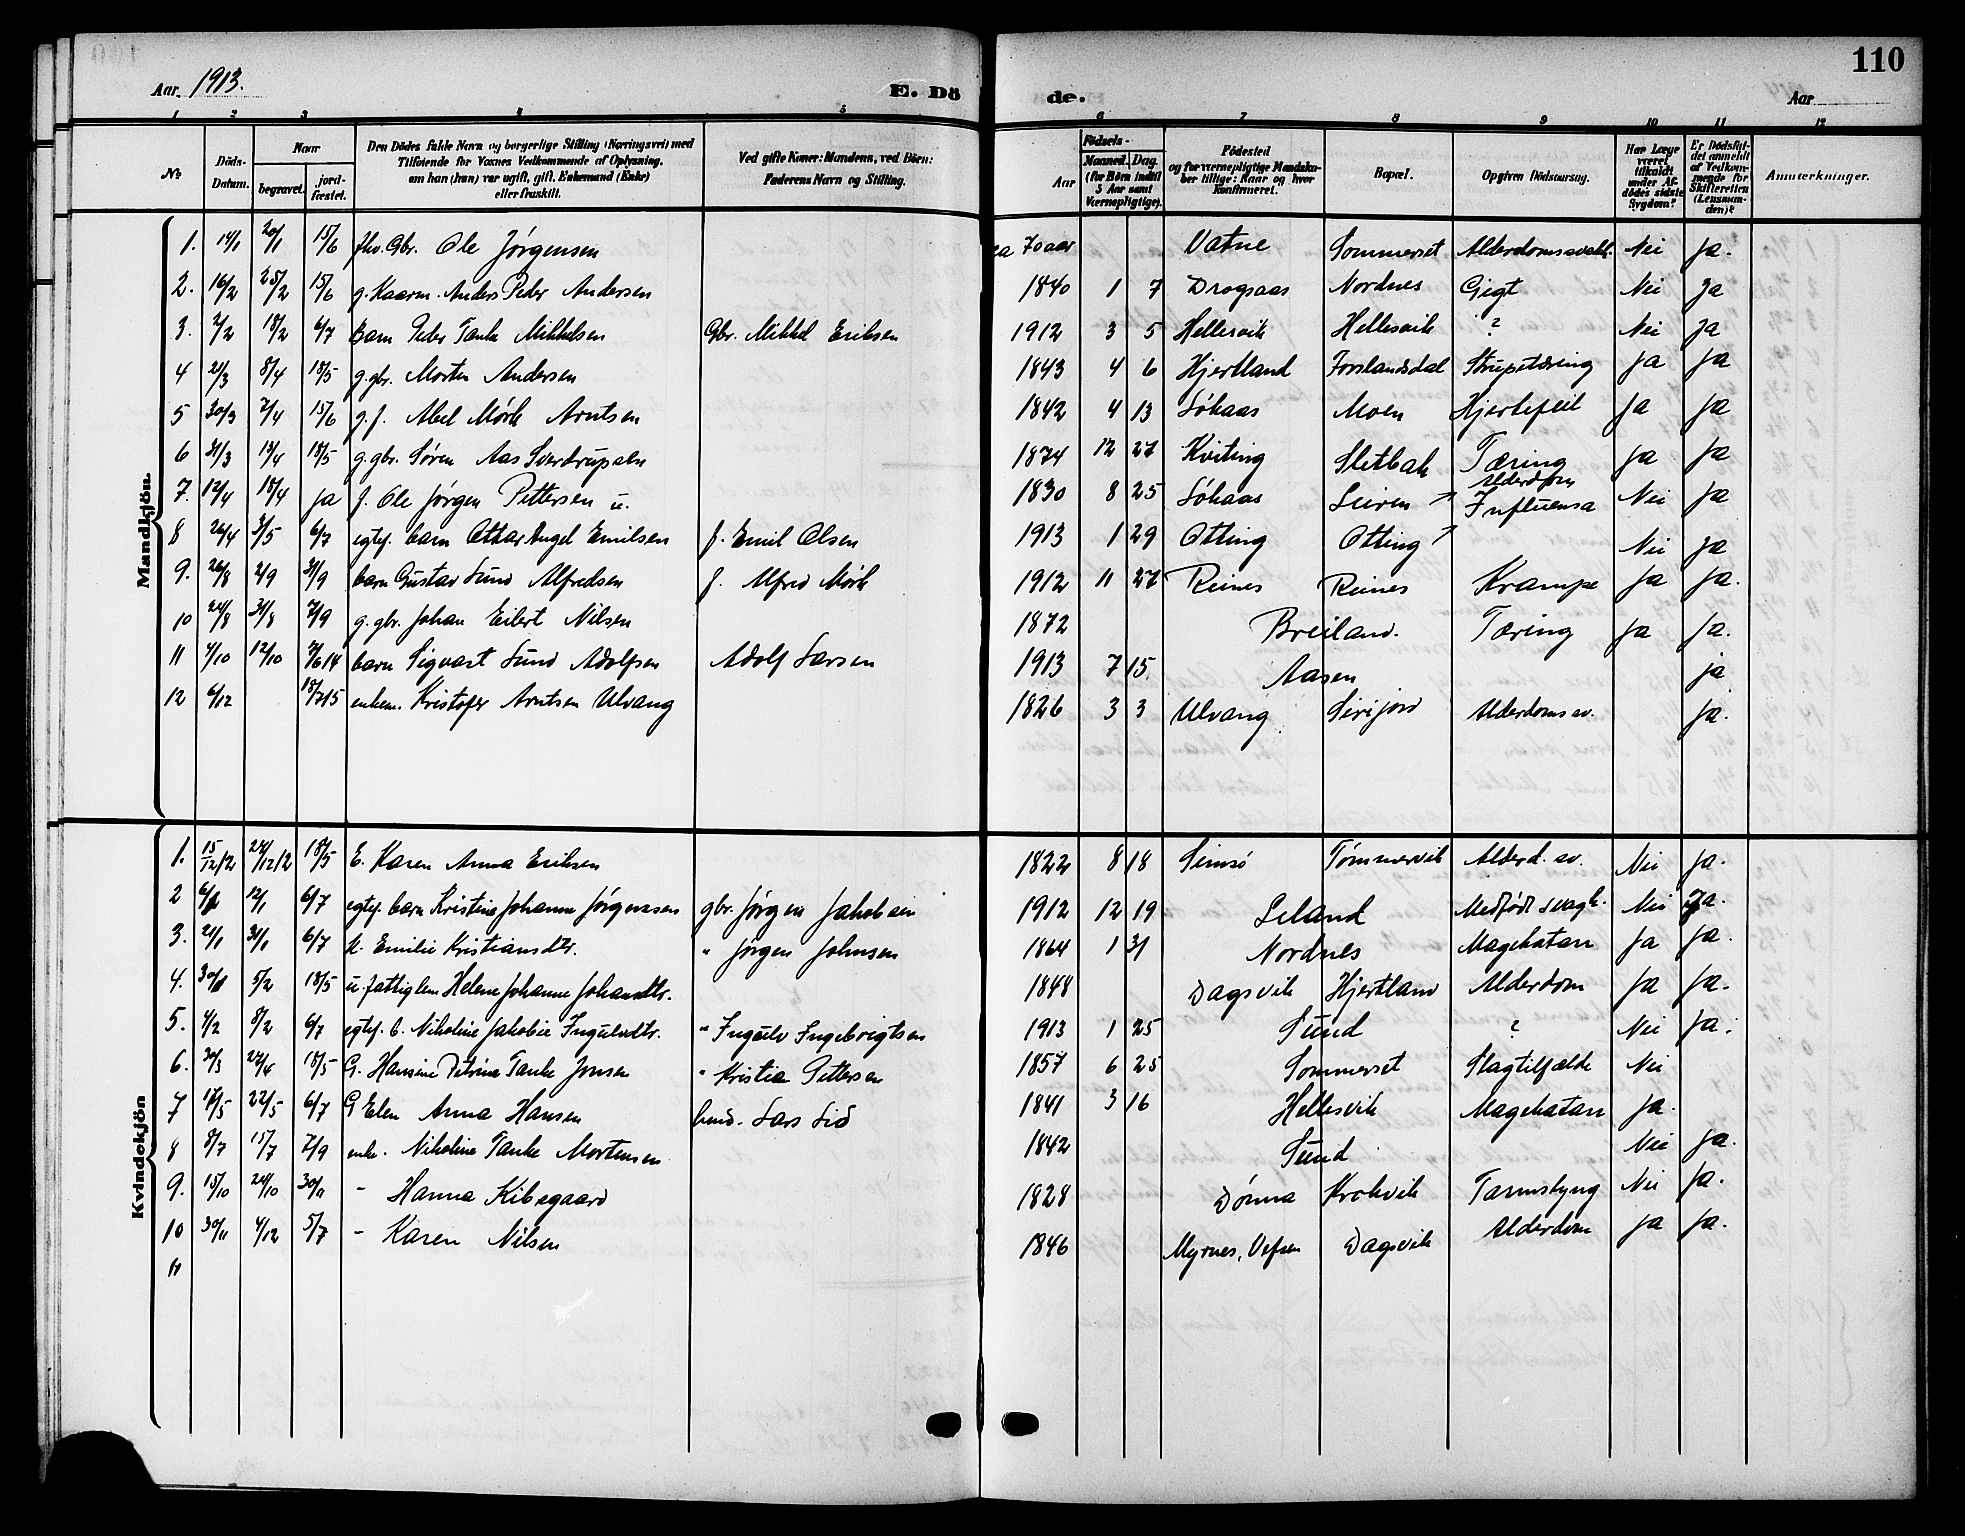 110
Aar 1913.
E. Dö
de.
Aar
1 2 3 4 5 6 7 8 9 10 11 12
No
Döds-Datum.
Naar
begravet.
jord-fæstet.
Den Dödes fulde Navn og borgerlige Stilling (Næringsvei) med
Tilföiende for Voxnes Vedkommende af Oplysning,
om han (hun) var ugift, gift, Enkemand (Enke)
eller fraskilt.
Ved gifte Koner: Mandens, ved Börn:
Faderens Navn og Stilling.
Födsels-
Aar
Maaned. Dag.
(for Börn indtil
5 Aar samt
Værnepligtige).
Födested
og for værnepligtige Mandskaber tillige: Naar og hvor
Konfirmeret.
Bopæl.
Opgiven Dödsaarsag.
Har Læge været tilkaldt under Afdödes sidste Sygdom?
Er Dödsfaldet anmeldt af Vedkommende for Skifteretten (Lensmanden)?
Anmærkninger.
Mandkjön.
1. 14/1 20/1 15/6 fhv. Gbr. Ole Jörgensen ca 70 aar Vatne Sommerset Alderdomssvakh. Nei Ja.
2. 16/2 25/2 15/6 g. Kaarm. Anders Peder Andersen 1840 1 7 Dragsaas Nordnes Gigt Nei Ja
3. 2/2 18/2 6/7 barn Peder Tank Mikkelsen Gbr. Mikkel Eriksen 1912 3 5 Hellesvik Hellesvik ? Nei Ja
4 21/3 8/4 18/5 g. gbr. Morten Andersen 1843 4 6 Hjertland Forslandsdal Strupetæring Ja Ja
5 30/3 7/4 15/6 g. f. Abel Mörk Arntsen 1842 4 13 Söhaas Moen Hjertefeil Ja Ja
6 31/3 13/4 18/5 g. gbr. Sören Aas Sverdrupsen 1874 12 27 Kviting Sletbak Tæring Ja Ja
7. 12/4 18/4 ja f. Ole Jörgen Pettersen u. 1830 8 25 Söhaas Leiren Alderdom Influensa Nei Ja
8 26/4 3/5 6/7 egtef. barn Ottar Angel Emilsen f. Emil Olsen 1913 1 29 Otting Otting Nei Ja
9. 26/8 2/9 31/9 barn Gustav Lund Alfredsen f. Alfred Mörk 1912 11 27 Reines Reines Krampe Ja Ja.
10 24/8 31/8 7/9 g. gbr. Johan Eilert Nilsen 1872 Breiland. Tæring Ja Ja.
11 4/10 12/10 7/6 14 barn Sigvart Lund Adolfsen Adolf Larsen 1913 7 15. Aasen ja
12 6/12 18/7 15 enkem. Kristofer Arntsen Ulvang 1826 3 3 Ulvang Seifjord Alderdomssv. Ja.
Kvindekjön
1. 15/12 12 24/12 12 18/5 E. Karen Anna Eriksen 1822 8 18 Simsö Tömmervik Alderd. sv. Nei Ja.
2 6/1 12/1 6/7 egtef. barn Kristine Johanne Jörgensen gbr. Jörgen Jakobsen 1912 12 19 Leland Medfödt svagh. Nei Ja.
3. 24/1 31/1 6/7 k. Emilie Kristiansdtr. " Jörgen Johnsen 1864 1 31 Nordnes Magekatarr Ja Ja.
4. 30/1 5/2 18/5 u. fattiglem Helene Johanne Johansdtr. 1848 Dagsvik Hjertland Alderdom Ja Ja.
5. 4/2 8/2 6/7 egtef. b. Nikoline Jakobie Ingulvdtr. " Ingulv Ingebrigtsen 1913 1 25 Sund ? Nei Ja.
6. 30/3 27/4 18/5 G. Hansine Petrine Tanke Jonsen " Kristian Pettersen 1857 6 25 Sommerset Slagtilfælde Nei
7 17/5 22/5 6/7 G Elen Anna Hansen Lars Lid 1841 3 16 Hellesvik Magekatarr Ja.
8 8/7 15/7 7/9 enke. Nikoline Tanke Mortensen 1842 Sund Nei Ja.
9. 15/10 24/10 30/11 - Hanna Kibsgaard 1828 Dönna Krokvik Tarmslyng Nei Ja.
10 30/11 4/12 5/7 - Karen Nilsen 1846 Myrnes, Vefsen Dagsvik Alderdom Ja Ja.
11